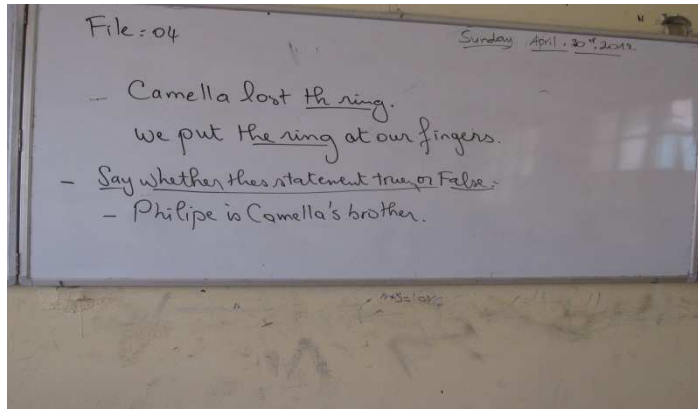 File : 04
Sunday April, 30th, 2012
- Camella lost th ring.
we put the ring at our fingers.
- Say whether thes statement true, or False:
- Philipe is Camella's brother.